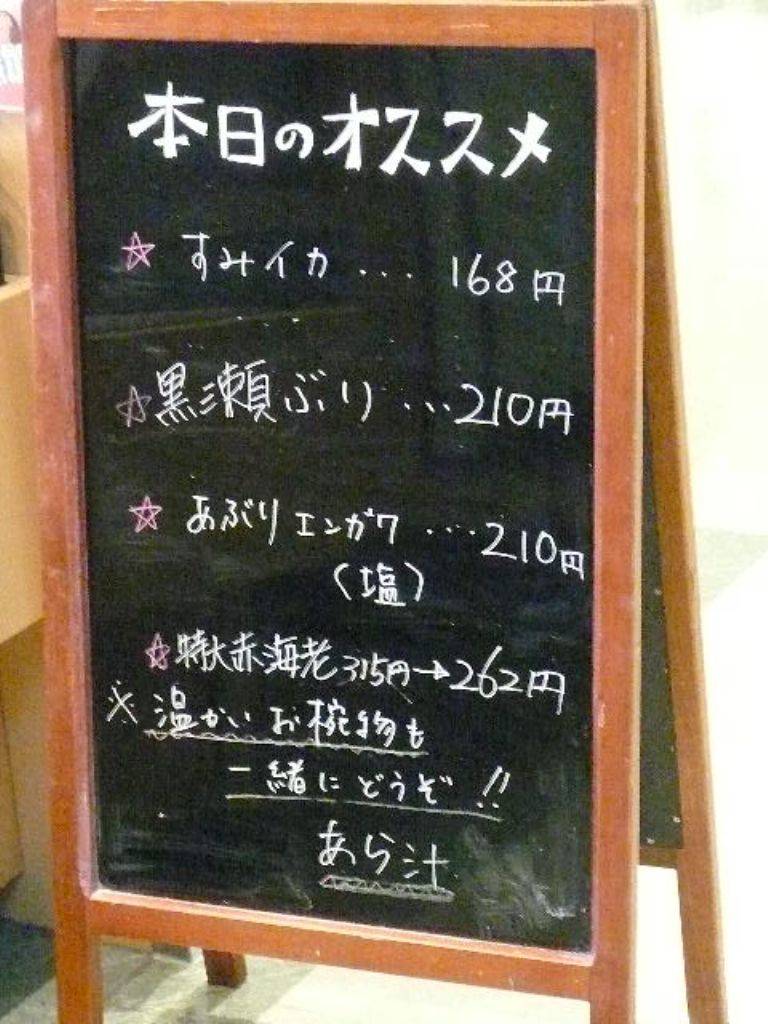 本日のオススメ
☆ すみイカ … 168円
☆ 黒瀬ぶり … 210円
☆ あぶりエンガワ … 210円
(塩)
☆ 特大赤海老 315円→262円
※ 温かいお椀物も
一緒にどうぞ!!
あら汁